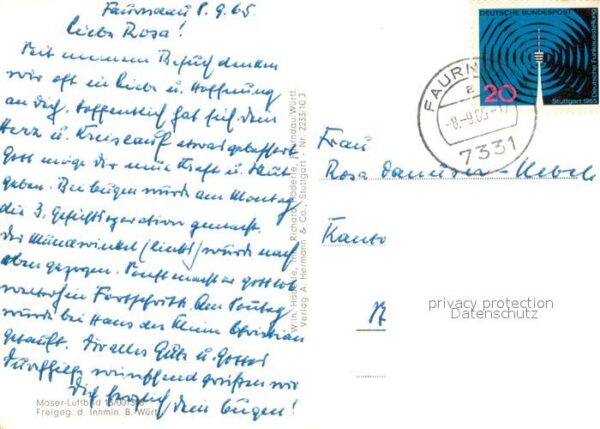 Faurndau 8.9.65.
Liebe Rosa!
Seit unserem Besuch denken
wir oft in Liebe u. Hoffnung
an dich. Hoffentlich hat sich dein
Herz u. Kreislauf etwas gebessert
Gott möge dir neue Kraft u. Mut
geben. Bei Eugen wurde am Montag
die 3. Gesichtsoperation gemacht.
Der Mundwinkel (links) wurde nach
oben gezogen. Sonst macht er gottlob
weiterhin Fortschritte. Am Sonntag
wurde bei Hans der kleine Christian
getauft. Dir alles Gute u. Gottes
wünschend grüßen wir
Dich herzlich dein Eugen!
Moser-Luftbild
Freigeg. d. Innmin. B. Württ.
Wilh. Häderle, Inh. Richard Häderle, Faurndau/Württ.
Verlag A. Hermann & Co., Stuttgart - Nr. 2235/10 3
DEUTSCHE BUNDESPOST
Deutsche Funkausstellung
Stuttgart 1965
20
FAURN
-8.-9.65-17
7331
Frau
Rosa
Kanto
privacy protection
Datenschutz